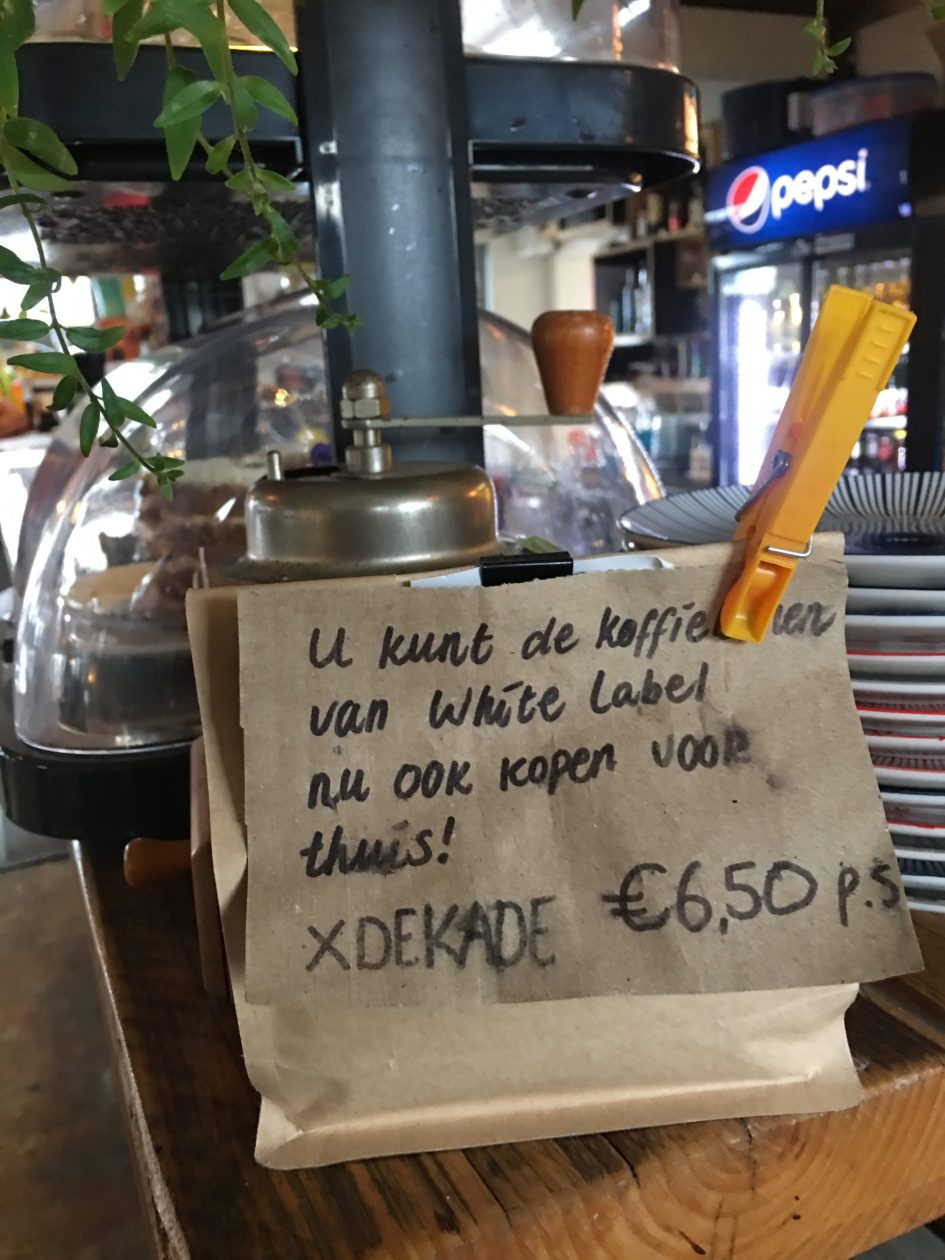 pepsi
U kunt de koffie
van White Label
nu ook kopen voor
thuis!
XDEKADE €6,50 p.s